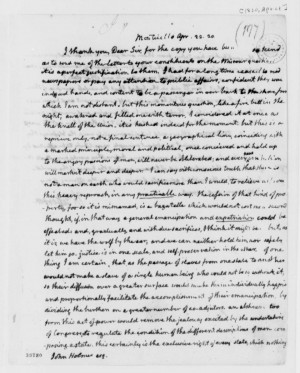 (177)
Monticello Apr. 22. 20
I thank you, Dear Sir, for the copy you have been so kind
as to send me of the letter to your constituents on the Missouri question.
it is a perfect justification to them. I had for a long time ceased to read
newspapers or pay any attention to public affairs, confident they were
in good hands, and content to be a passenger in our bark to the shore from
which I am not distant. but this momentous question, like a fire bell in the
night, awakened and filled me with terror. I considered it at once as
the knell of the Union. it is hushed indeed for the moment. but this is a
reprieve only, not a final sentence. a geographical line, coinciding with
a marked principle, moral and political, once concieved and held up
to the angry passions of men, will never be obliterated; and every new irritation
will mark it deeper and deeper. I can say with conscious truth that there is
not a man on earth who would sacrifice more than I would, to relieve us from
this heavy reproach, in any practicable way. the cession of that kind of pro-
perty, for so it is misnamed, is a bagatelle which would not cost me a second
thought, if, in that way, a general emancipation and expatriation could be
effected: and, gradually, and with due sacrifices, I think it might be. but, as
it is, we have the wolf by the ear, and we can neither hold him, nor safely
let him go. justice is in one scale, and self-preservation in the other. of one
thing I am certain, that as the passage of slaves from one state to another
would not make a slave of a single human being who would not be so without it,
so their diffusion over a greater surface would make them individually happier
and proportionally facilitate the accomplishment of their emancipation; by
dividing the burthen on a greater number of co-adjutors. an abstinence too
from this act of power would remove the jealousy excited by the undertaking
of Congress, to regulate the condition of the different descriptions of men com-
posing a state. this certainly is the exclusive right of every state, which nothing
John Holmes esq.